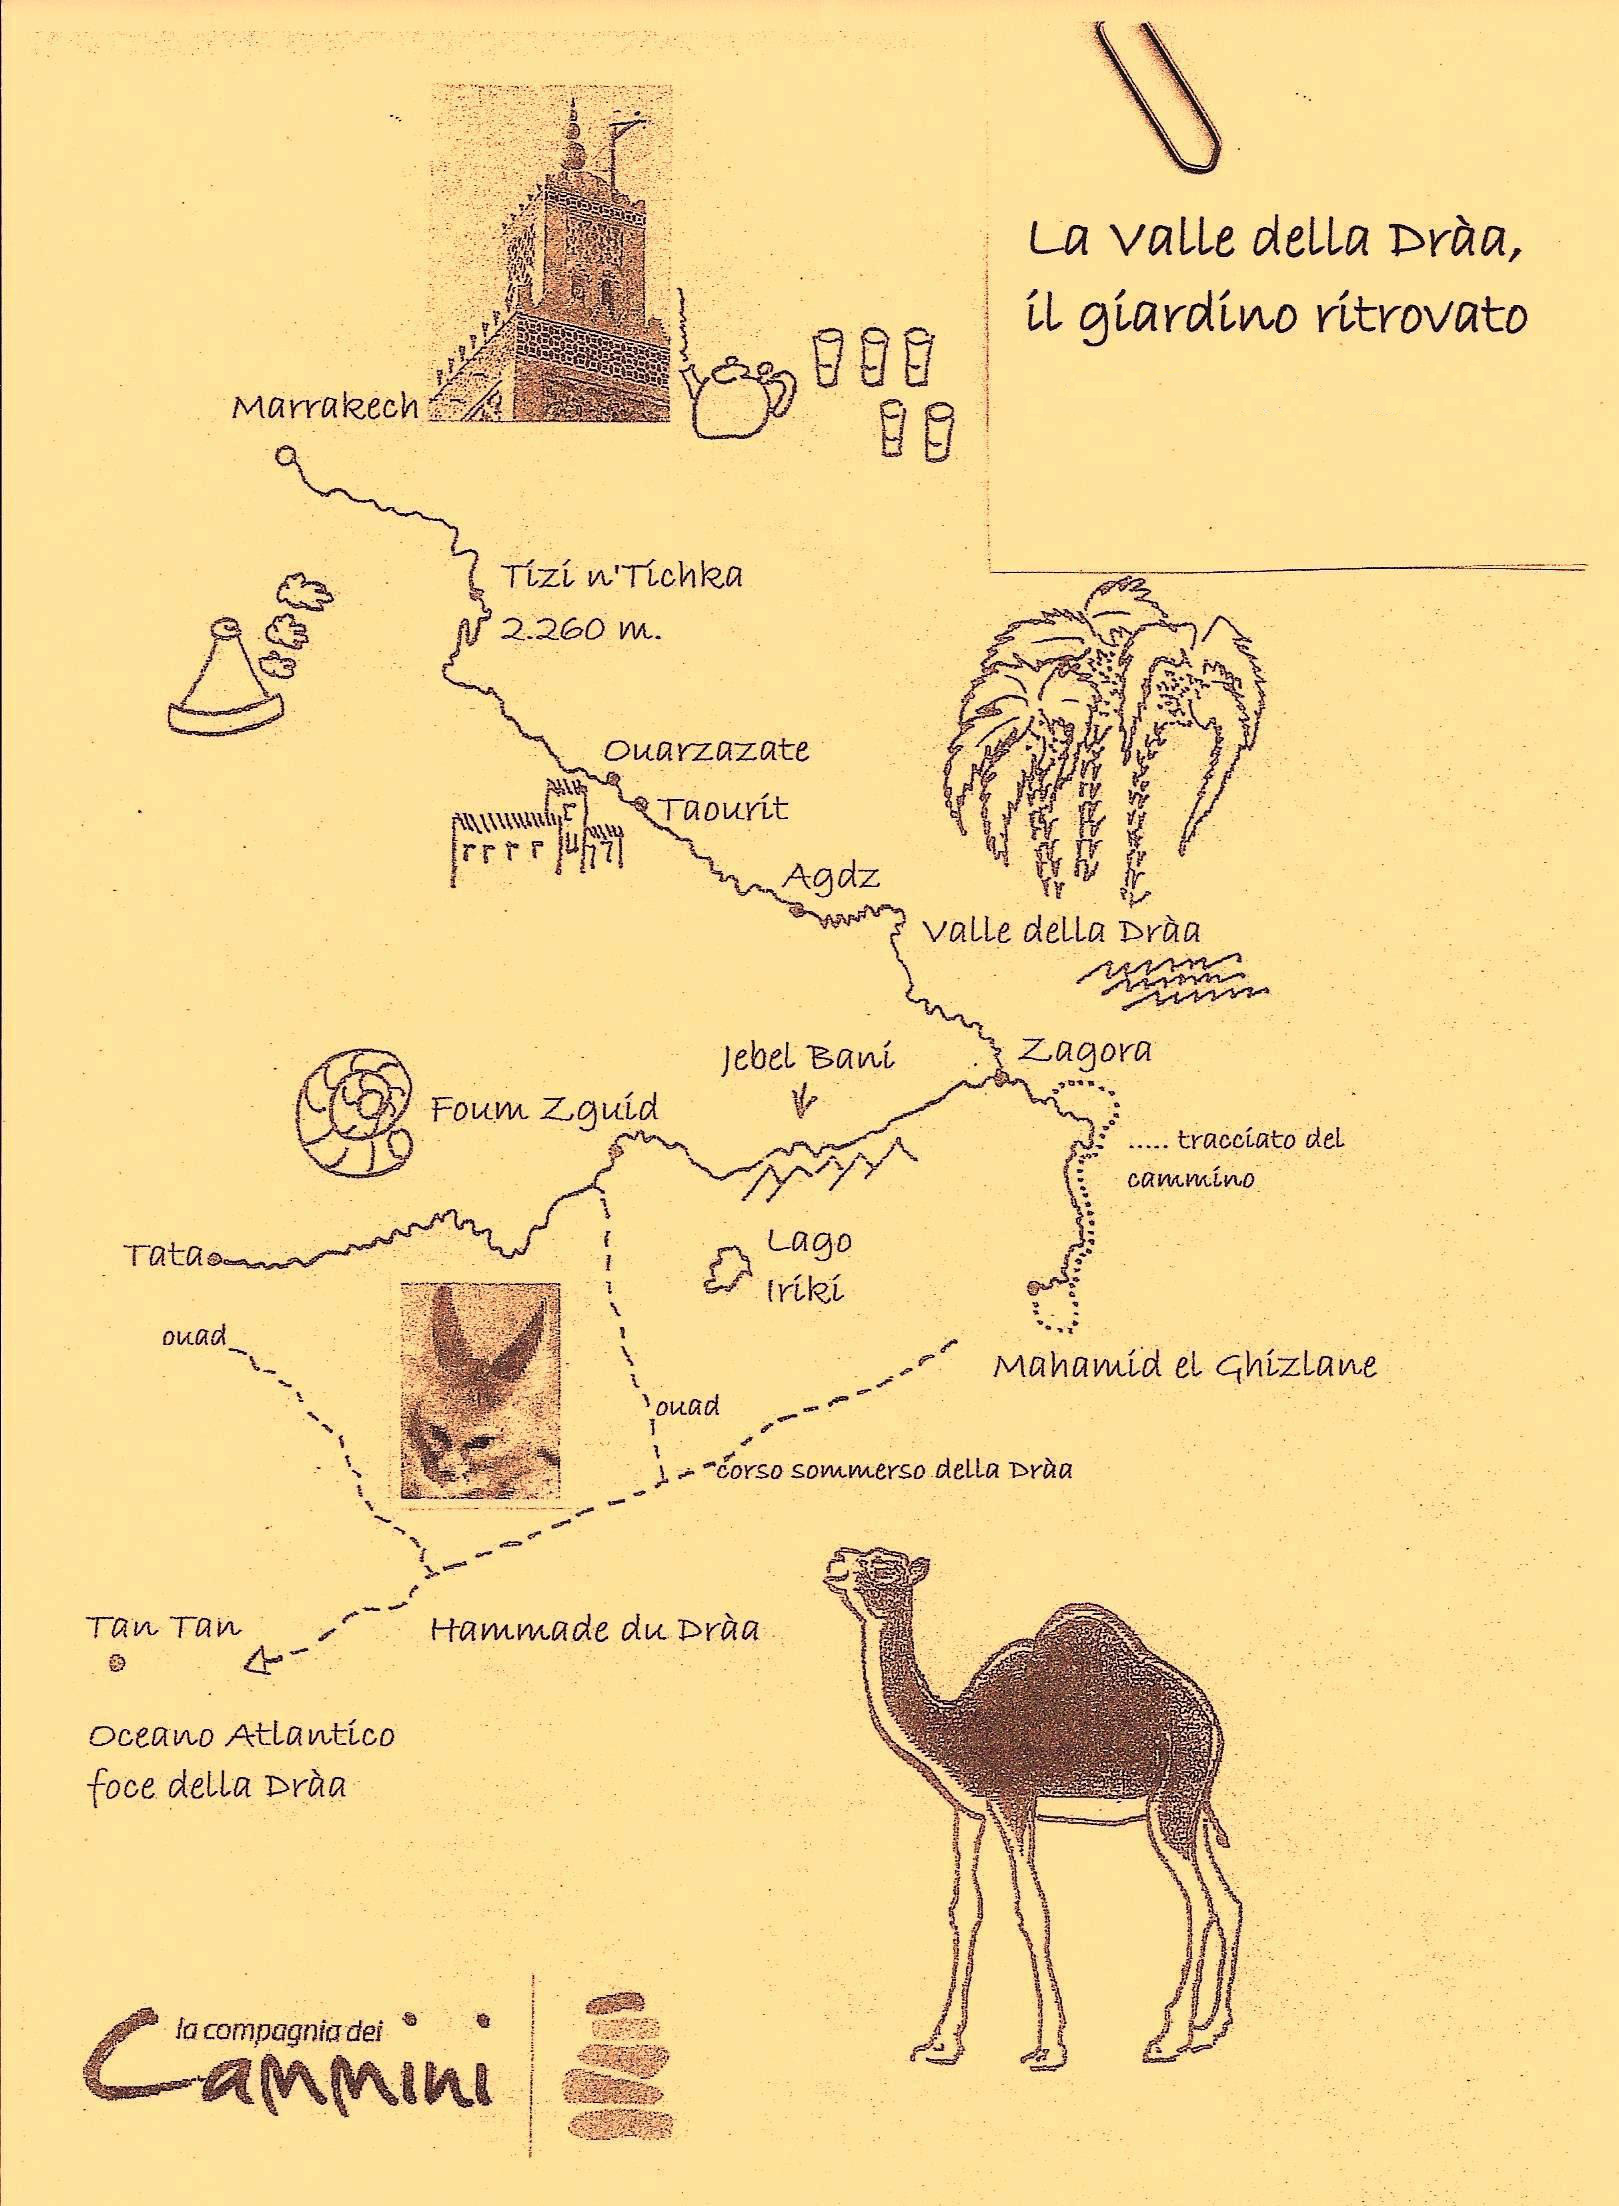 La Valle della Dràa,
il giardino ritrovato
Marrakech
Tizi n'Tichka
2.260 m.
Ouarzazate
Taourit
Agdz
Valle della Dràa
Zagora
Jebel Bani
Foum Zguid
..... tracciato del
cammino
Tata
Lago
Iriki
ouad
Mahamid el Ghizlane
ouad
corso sommerso della Dràa
Tan Tan
Hammade du Dràa
Oceano Atlantico
foce della Dràa
la compagnia dei
Cammini